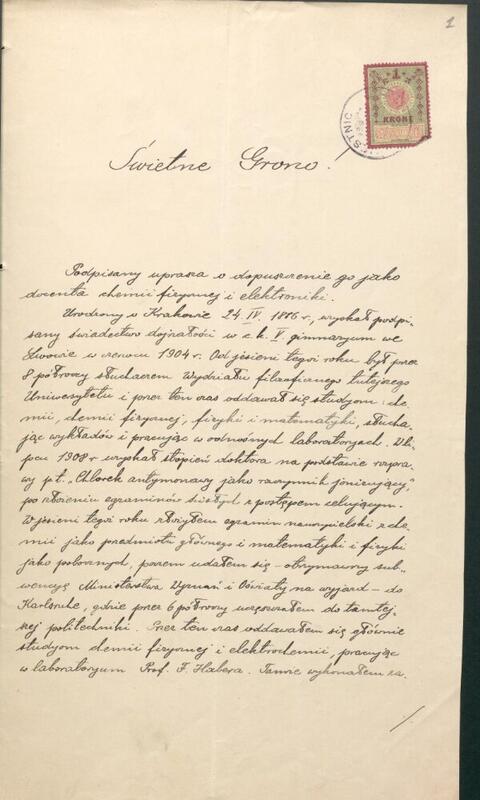 1
1
KRONE
STNIC
Świetne Grono!
Podpisany uprasza o dopuszczenie go jako
docenta chemii fizycznej i elektroniki.
Urodzony w Krakowie 24 IV. 1886 r., uzyskał podpi-
sany świadectwo dojrzałości w c. k. V. gimnazyum we
Lwowie w czerwcu 1904 r. Od jesieni tegoż roku był przez
8 półroczy słuchaczem Wydziału filozoficznego tutejszego
Uniwersytetu i przez ten czas oddawał się studyom che-
mii, chemii fizycznej, fizyki i matematyki, słucha-
jąc wykładów i pracując w odnośnych laboratoryach. W li-
pcu 1908 r. uzyskał stopień doktora na podstawie rozpra-
wy p.t. „Chlorek antymonawy jako rozczynnik jonizujący",
po złożeniu egzaminów ścisłych z postępem celującym.
W jesieni tegoż roku złożyłem egzamin nauczycielski z che-
mii jako przedmiotu głównego i matematyki i fizyki
jako pobocznych, poczem udałem się – otrzymawszy sub-
wencyę Ministerstwa Wyznań i Oświaty na wyjazd – do
Karlsruhe, gdzie przez 6 półroczy uczęszczałem do tamtej-
szej politechniki. Przez ten czas oddawałem się głównie
studyom chemii fizycznej i elektrochemii, pracując
w laboratoryum Prof. F. Habera. Tamże wykonałem za-